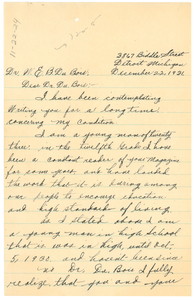 3967 Biddle Street
Detroit Michigan
December 22, 1931
Dr. W. E. B. Du Bois:
Dear Dr. Du Bois:-
I have been contemplating
Writing you for a long time,
concerning my condition
I am a young man of twenty
three, in the twelfth Grade, I have
been a constant reader of your Magazine
for some years, and have lauded
the work that it is doing among
our people to encourage education
and high standards of living.
As I stated above I am
a young man in High School
that is was in high, until Oct.
5, 1930. and haven't been since
as Dr. Bois I fully
realize that you and your